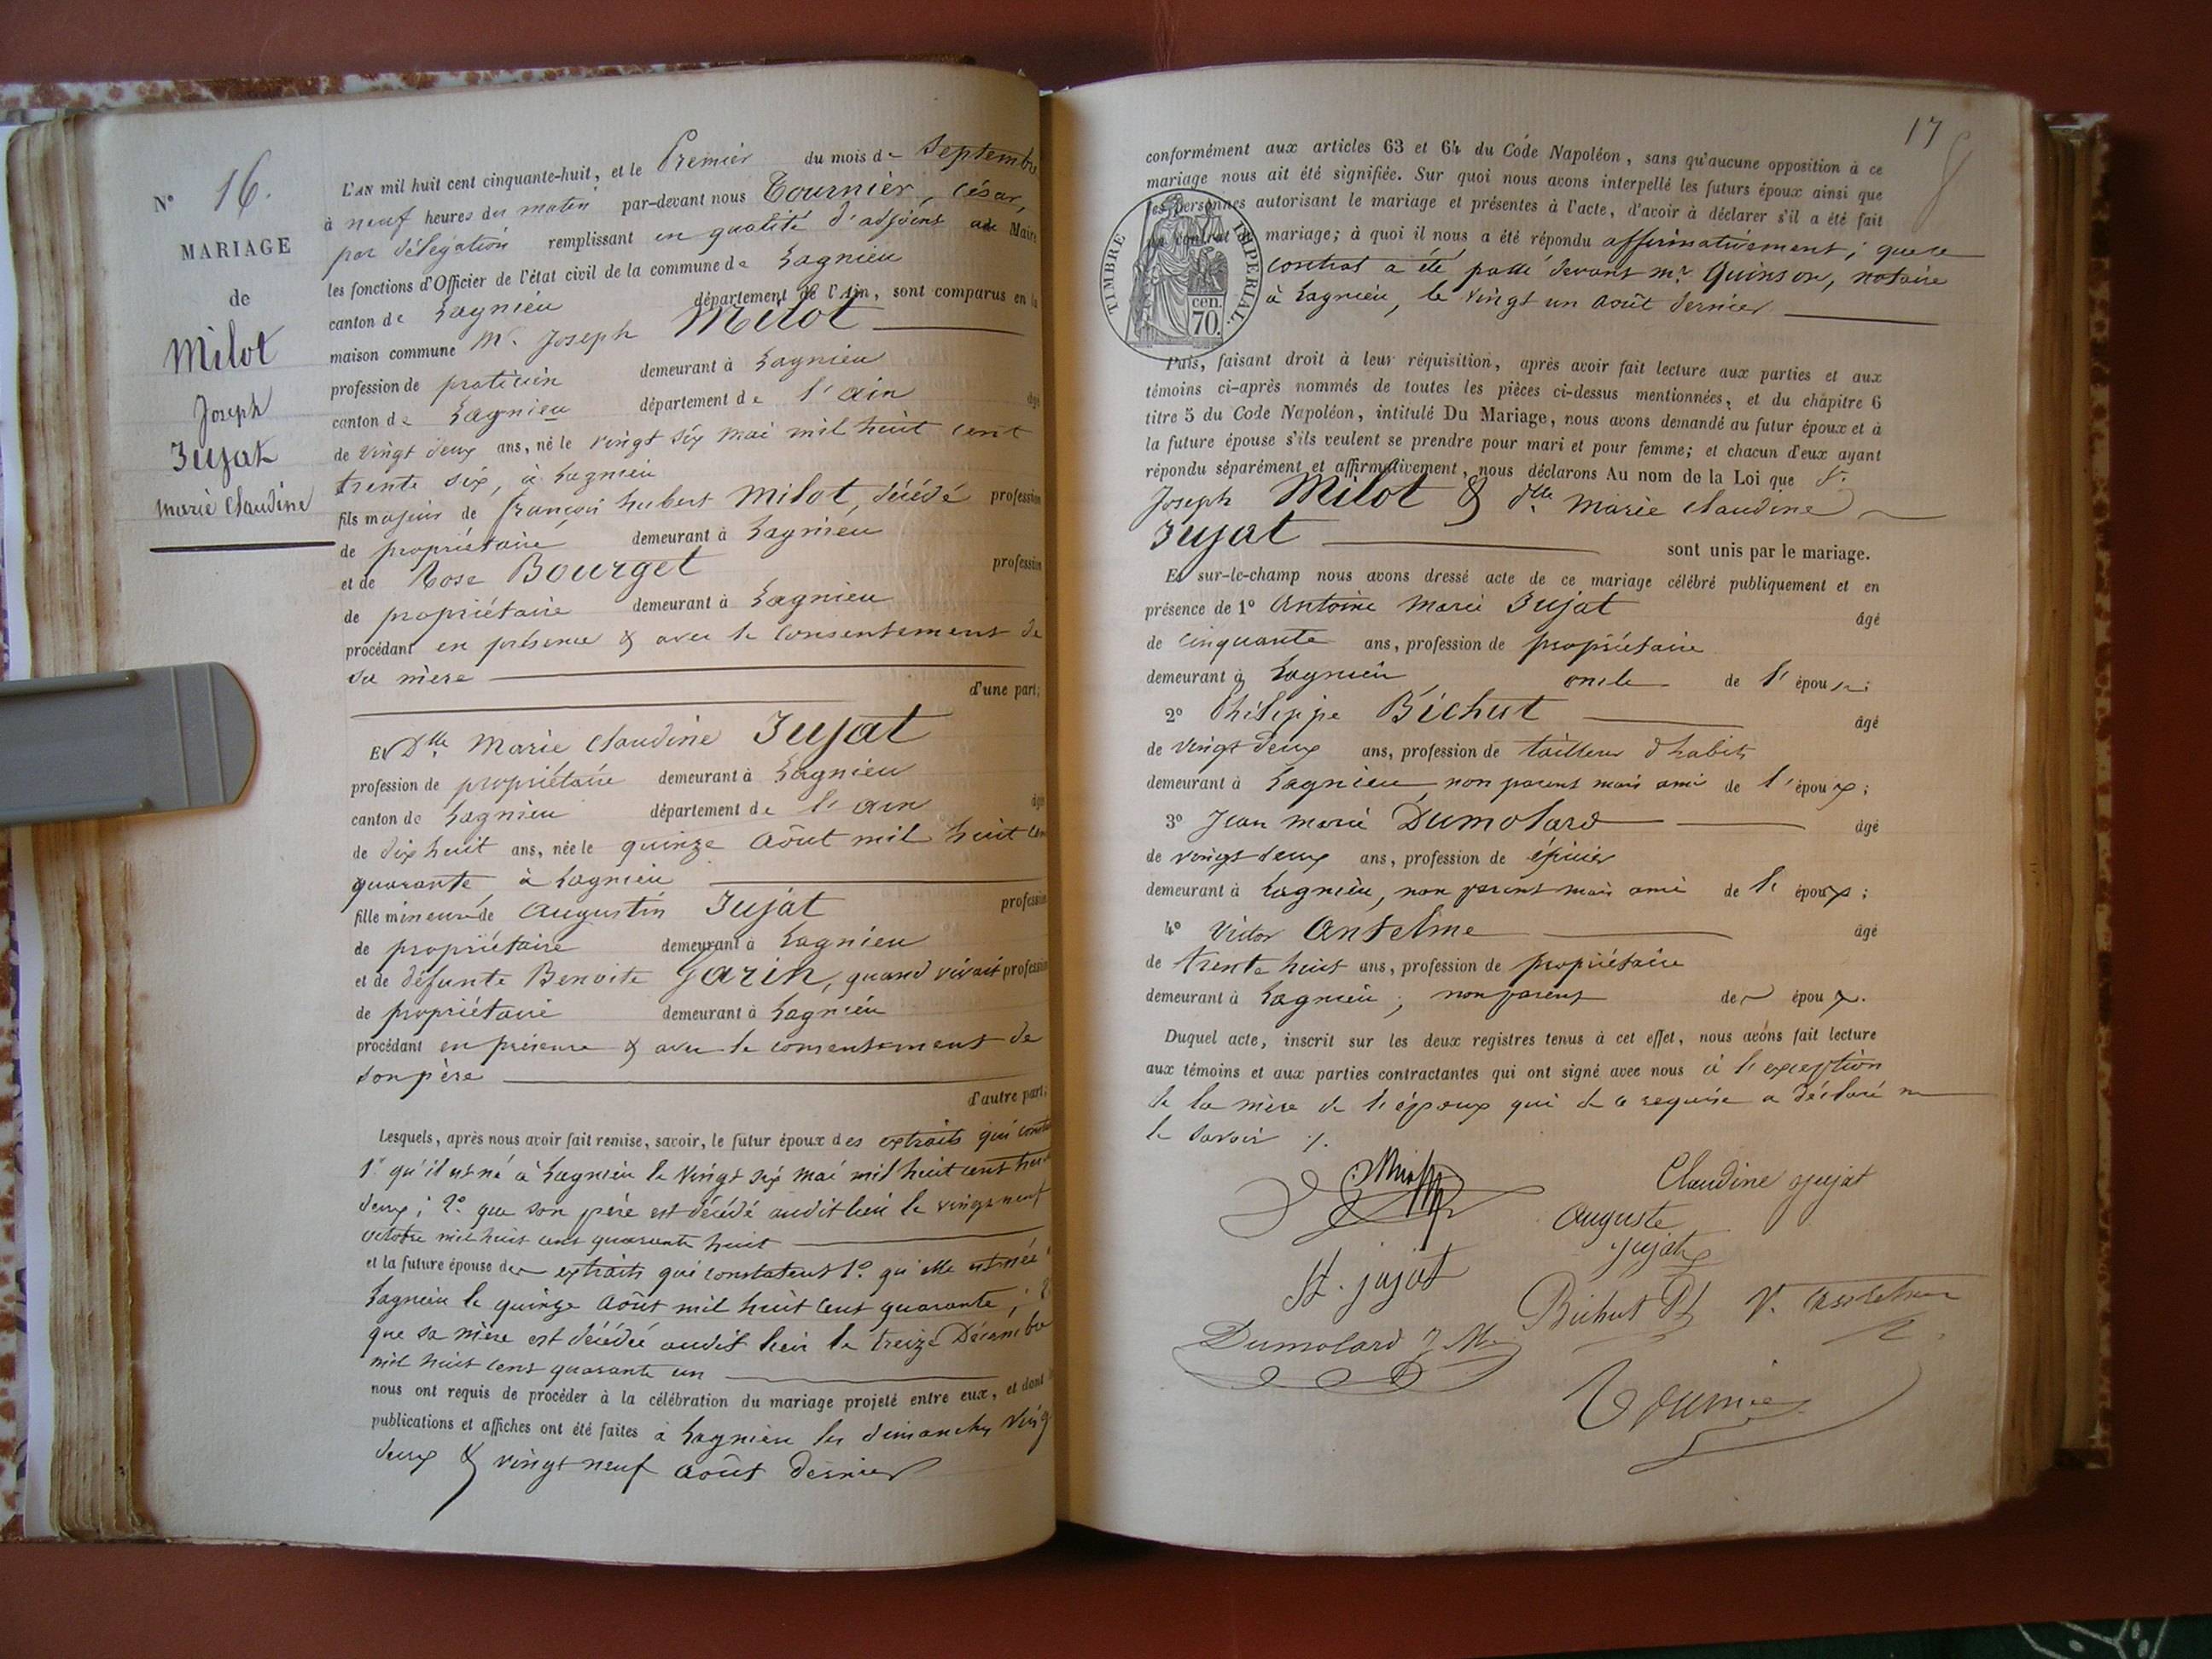 N° 16.
MARIAGE
de
Milot
Joseph
Jujat
marie Claudine
L'AN mil huit cent cinquante-huit, et le Premier du mois de Septembre
à neuf heures du matin par-devant nous Tournier, César,
par délégation remplissant en qualité d'adjoint au Maire
les fonctions d'Officier de l'état civil de la commune de Lagnieu
canton de Lagnieu département de l'Ain, sont comparus en la
maison commune Mr. Joseph Milot
profession de praticien demeurant à Lagnieu
canton de Lagnieu département de l'ain âgé
de vingt deux ans, né le vingt six mai mil huit cent
trente six, à Lagnieu
fils majeur de françois hubert Milot, décédé profession
de propriétaire demeurant à Lagnieu
et de Rose Bourget profession
de propriétaire demeurant à Lagnieu
procédant en présence & avec le consentement de
sa mère
d'une part;
Et Dlle Marie Claudine Jujat
profession de propriétaire demeurant à Lagnieu
canton de Lagnieu département de l'ain âgée
de dix huit ans, née le quinze Août mil huit cent
quarante, à Lagnieu
fille mineure de Augustin Jujat profession
de propriétaire demeurant à Lagnieu
et de défunte Benoite Garin, quand vivait profession
de propriétaire demeurant à Lagnieu
procédant en présence & avec le consentement de
son père
d'autre part;
Lesquels, après nous avoir fait remise, savoir, le futur époux des extraits qui
1° qu'il est né à Lagnieu le vingt six mai mil huit cent
deux; 2° que son père est décédé audit lieu le vingt neuf
octobre mil huit cent quarante huit
et la future épouse des extraits qui constatent 1° qu'elle est née à
Lagnieu le quinze Août mil huit cent quarante; 2°
que sa mère est décédée audit lieu le treize Décembre
mil huit cent quarante un
nous ont requis de procéder à la célébration du mariage projeté entre eux, et dont
publications et affiches ont été faites à Lagnieu les dimanches vingt
deux & vingt neuf août dernier
17
conformément aux articles 63 et 64 du Code Napoléon, sans qu'aucune opposition à ce
mariage nous ait été signifiée. Sur quoi nous avons interpellé les futurs époux ainsi que
les personnes autorisant le mariage et présentes à l'acte, d'avoir à déclarer s'il a été fait
un contrat de mariage; à quoi il nous a été répondu affirmativement; que ce
contrat a été passé devant mr. Quinson, notaire
à Lagnieu, le vingt un août dernier
TIMBRE IMPERIAL.
cen.
70.
Puis, faisant droit à leur réquisition, après avoir fait lecture aux parties et aux
témoins ci-après nommés de toutes les pièces ci-dessus mentionnées, et du chapitre 6
titre 5 du Code Napoléon, intitulé Du Mariage, nous avons demandé au futur époux et à
la future épouse s'ils veulent se prendre pour mari et pour femme; et chacun d'eux ayant
répondu séparément et affirmativement, nous déclarons Au nom de la Loi que Sr.
Joseph Milot & dlle Marie Claudine
Jujat sont unis par le mariage.
Et sur-le-champ nous avons dressé acte de ce mariage célébré publiquement et en
présence de 1° Antoine Marie Jujat âgé
de cinquante ans, profession de propriétaire
demeurant à Lagnieu oncle de l'épouse;
2° Philippe Bichut âgé
de vingt deux ans, profession de tailleur d'habits
demeurant à Lagnieu, non parent mais ami de l'époux;
3° Jean Marie Dumolard âgé
de vingt deux ans, profession de épicier
demeurant à Lagnieu, non parent mais ami de l'époux;
4° Victor Anselme âgé
de trente huit ans, profession de propriétaire
demeurant à Lagnieu, non parent de époux.
Duquel acte, inscrit sur les deux registres tenus à cet effet, nous avons fait lecture
aux témoins et aux parties contractantes qui ont signé avec nous à l'exception
de la mère de l'époux qui de ce requise a déclaré ne
le savoir ./.
Milot
Claudine jujat
Auguste
jujat
jujat
Bichut Ph
V. anselme
Dumolard J M
Tournier